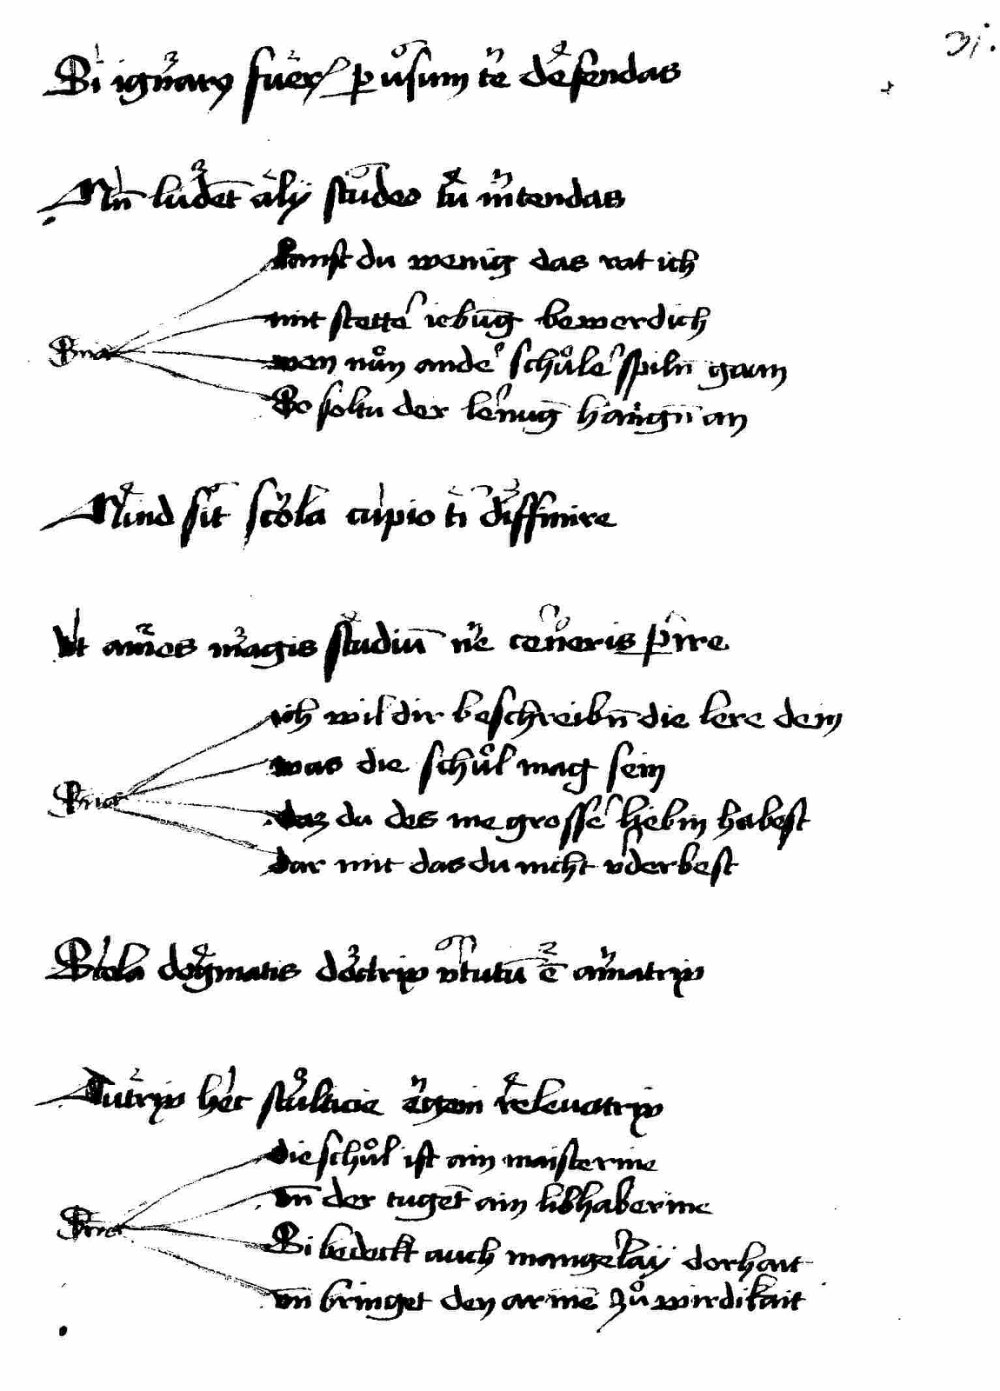 vj.
Si ignarus fuer̄ per usum te defendas
Nn̄ ludēt alij studeo tu intendas
kanst du wenig das rat ich
mit stette iebūg bewerdich
wen nun ander schůler spiln̄ gaan
So soltu der lernug han̄gn̄ an
Nind sit scola cupio ti diffinire
Ut ames magis studiū ne ceneris prire
ich wil dir beschreibn̄ die lere dein
was die schůl mag sein
daz du des me grosser liebin habest
dar mit das du nicht vderbest
Scola dogmatis doctrix v̄tutū ē amatrix
Nutrix hec stulticie egeni releuatrix
die schůl ist ain maisterine
vn̄ der tugēt ain libhaberine
Si bedeckt auch mangerlay dorhait
vn̄ bringet den armē zů wirdikait